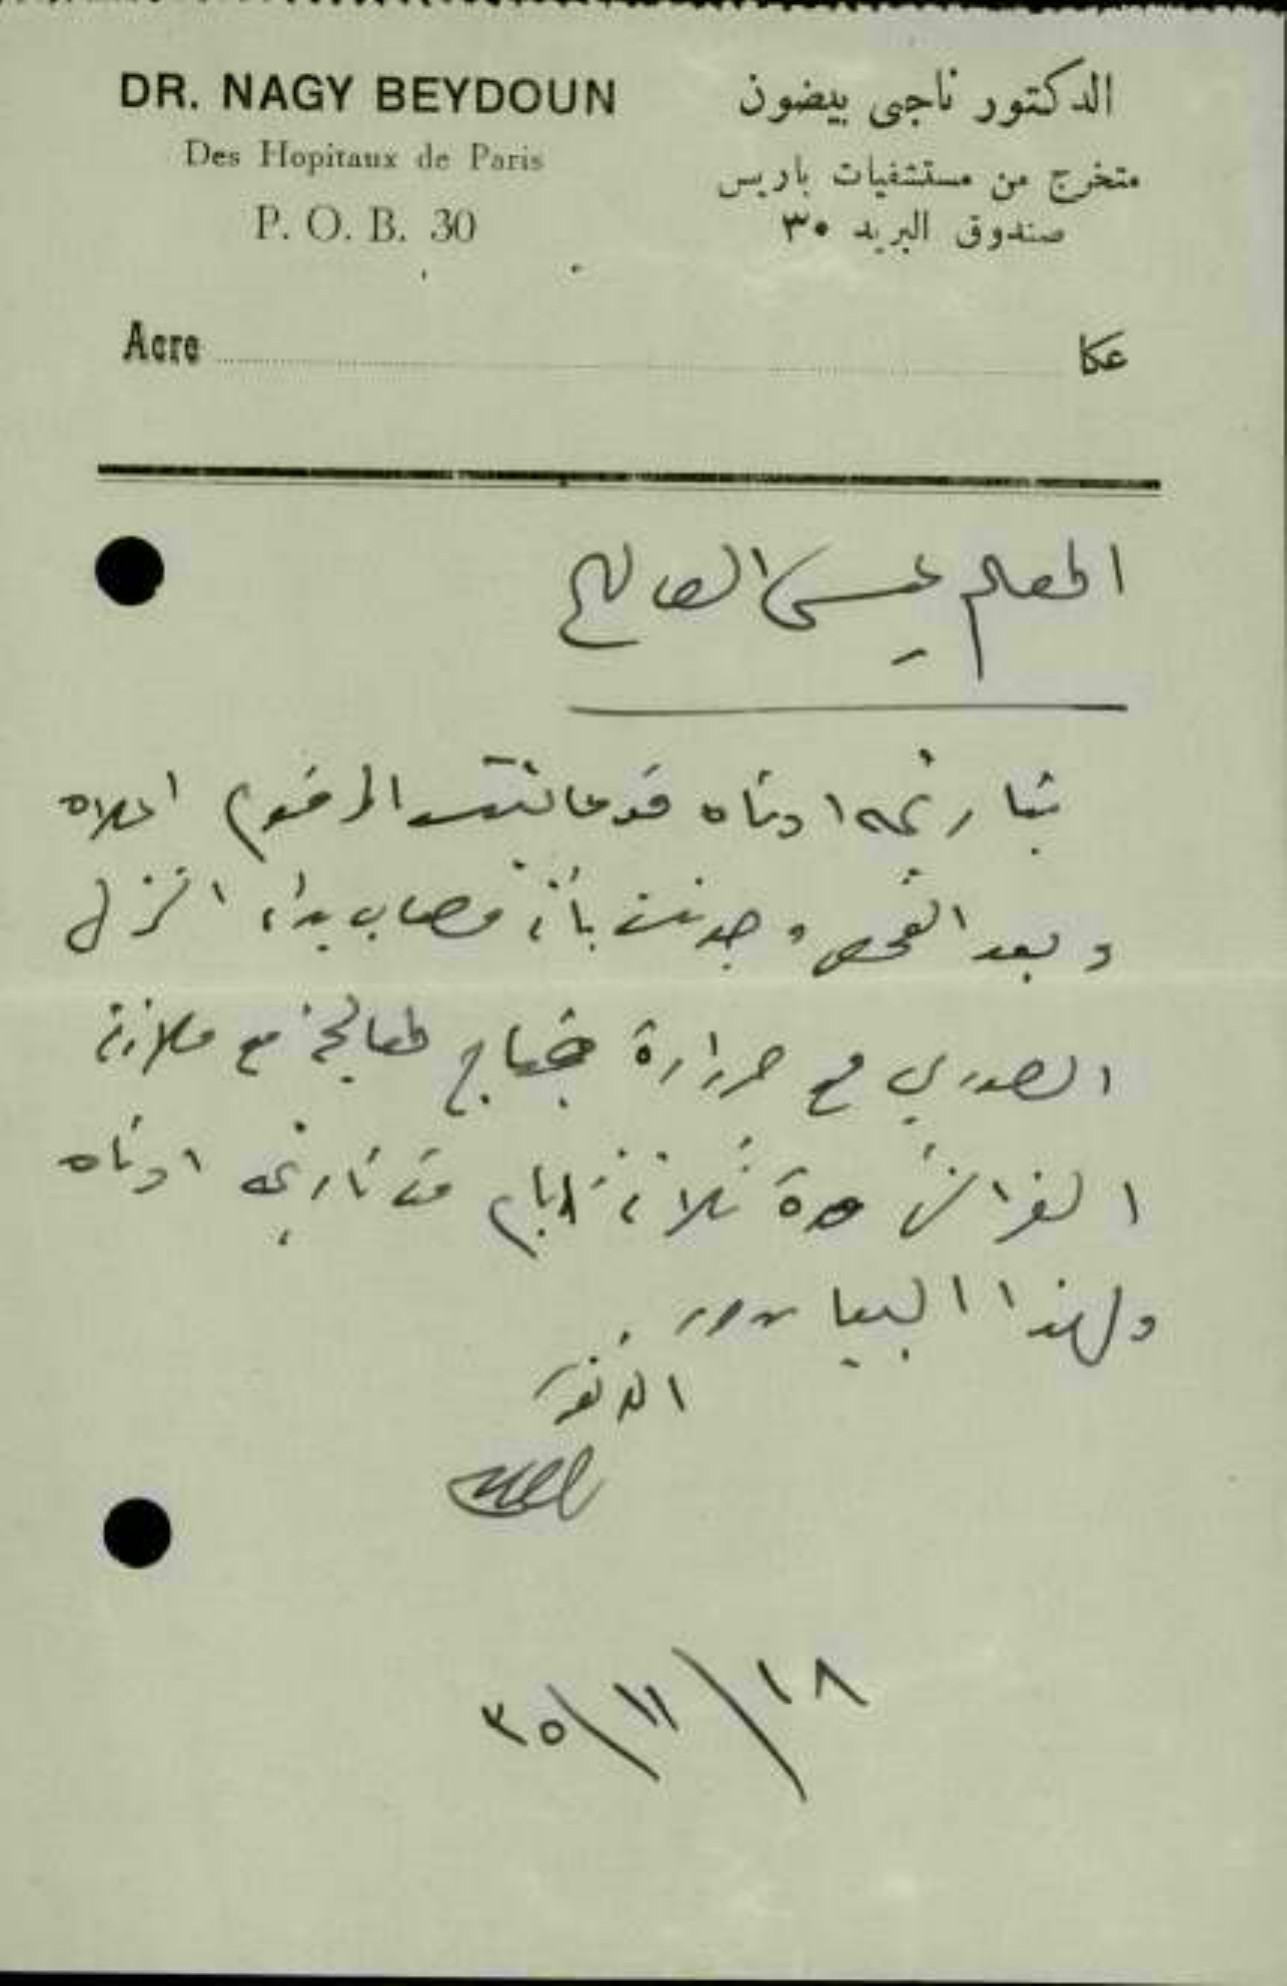 DR. NAGY BEYDOUN
Des Hopitaux de Paris
P. O. B. 30
الدكتور ناجى بيضون
متخرج من مستشفيات باريس
صندوق البريد ٣٠
Acre عكا
المعلم عيسى الصالح
بتاريخه ادناه قد عاينت المرقوم اعلاه
وبعد الفحص وجدت بأنه مصاب بداء النزل
الصدري مع حرارة يحتاج لمعالجة مع ملازمة
الفراش مدة ثلاثة ايام من تاريخه ادناه
ولهذا البيان
١٨/١١/٣٥